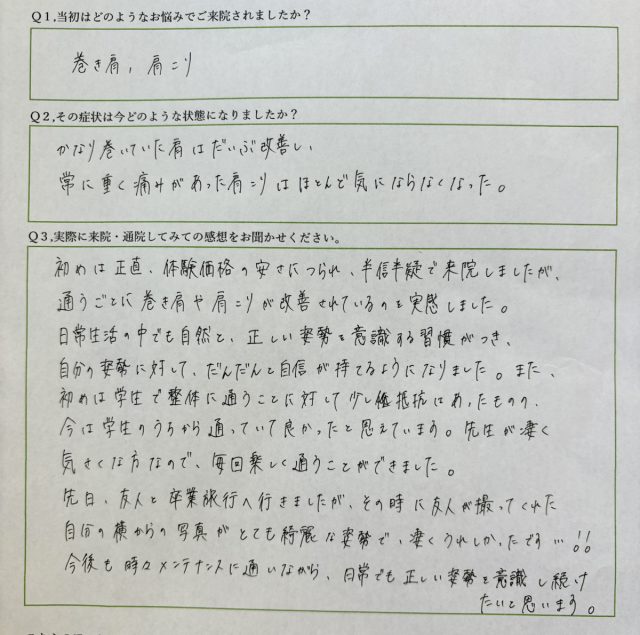 Q1,当初はどのようなお悩みでご来院されましたか？
巻き肩, 肩こり
Q2,その症状は今どのような状態になりましたか？
かなり巻いていた肩はだいぶ改善し、
常に重く痛みがあった肩こりはほとんど気にならなくなった。
Q3,実際に来院・通院してみての感想をお聞かせください。
初めは正直、体験価格の安さにつられ、半信半疑で来院しましたが、
通うごとに巻き肩や肩こりが改善されているのを実感しました。
日常生活の中でも自然と、正しい姿勢を意識する習慣がつき、
自分の姿勢に対して、だんだんと自信が持てるようになりました。また、
初めは学生で整体に通うことに対して少し抵抗はあったものの、
今は学生のうちから通っていて良かったと思えています。先生が凄く
気さくな方なので、毎回楽しく通うことができました。
先日、友人と卒業旅行へ行きましたが、その時に友人が撮ってくれた
自分の横からの写真がとても綺麗な姿勢で、凄くうれしかったです…!!
今後も時々メンテナンスに通いながら、日常でも正しい姿勢を意識し続け
たいと思います。